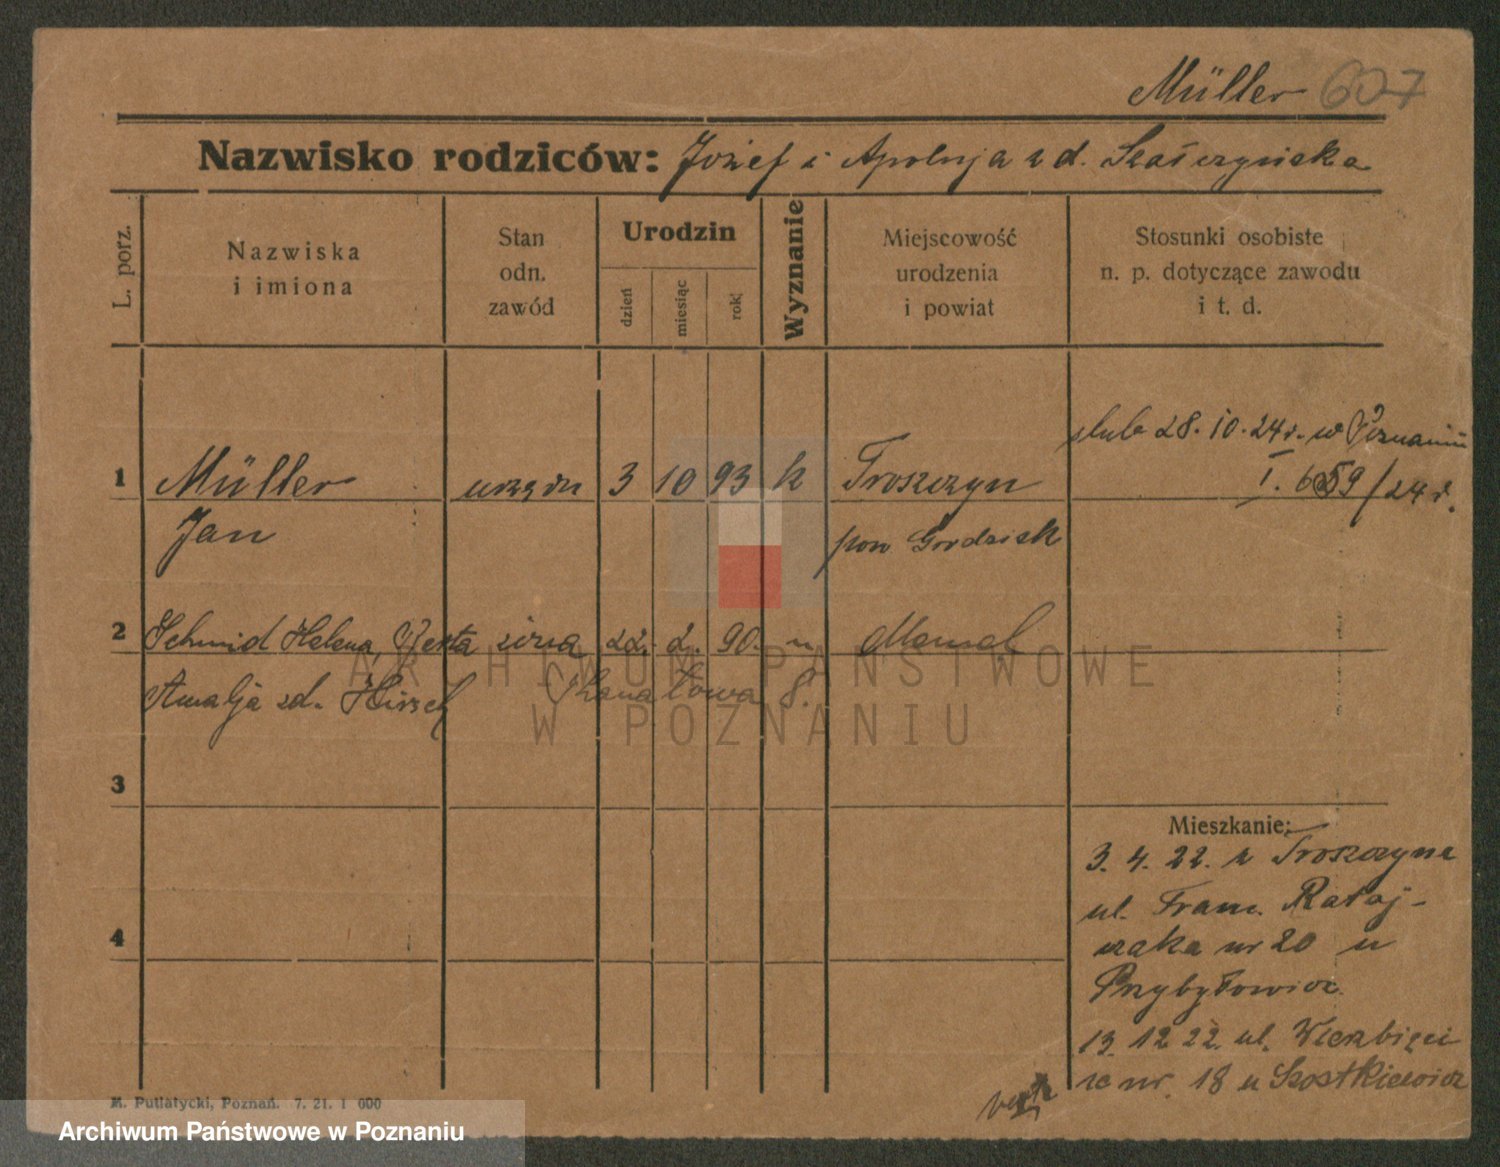 Müller 607
Nazwisko rodziców: Józef i Apolnja z d. Szałczyńska
L. porz.
Nazwiska
i imiona
Stan
odn.
zawód
Urodzin
dzień
miesiąc
rok
Wyznanie
Miejscowość
urodzenia
i powiat
Stosunki osobiste
n. p. dotyczące zawodu
i t. d.
ślub 28.10.24r. w Poznaniu
1 Müller urzędn 3 10 93 k Troszczyn I. 659/24 r.
Jan pow Grodzisk
2 Schmid Helena, Berta żona 22. 2. 90. Memel
Amalja zd. Hirsch
3
4
Mieszkanie:
3. 4. 22. z Troszczyna
ul. Franc. Rataj-
czaka nr 20 u
Przybyłowicz.
13. 12 22. ul. Wierzbięci
ce nr. 18 u Szostkiewicz
M. Putiatycki, Poznań. 7. 21. 1 000
ARCHIWUM PAŃSTWOWE
W POZNANIU
Archiwum Państwowe w Poznaniu